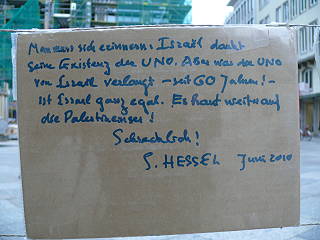 Man muss sich erinnern: Israël dankt
seine Existenz der UNO. Aber was die UNO
von Israël verlangt - seit 60 Jahren! -
ist Israel ganz egal. Es haut weiter auf
die Palestinenser!
Schrecklich!
S. HESSEL Juni 2010